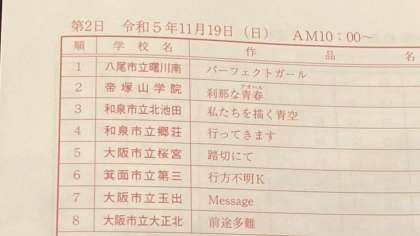 第2日 令和5年11月19日（日） AM10：00〜
順 学校名 作品名
1 八尾市立曙川南 パーフェクトガール
2 帝塚山学院 刹那な青春
アオハル
3 和泉市立北池田 私たちを描く青空
4 和泉市立郷荘 行ってきます
5 大阪市立桜宮 踏切にて
6 箕面市立第三 行方不明K
7 大阪市立玉出 Message
8 大阪市立大正北 前途多難